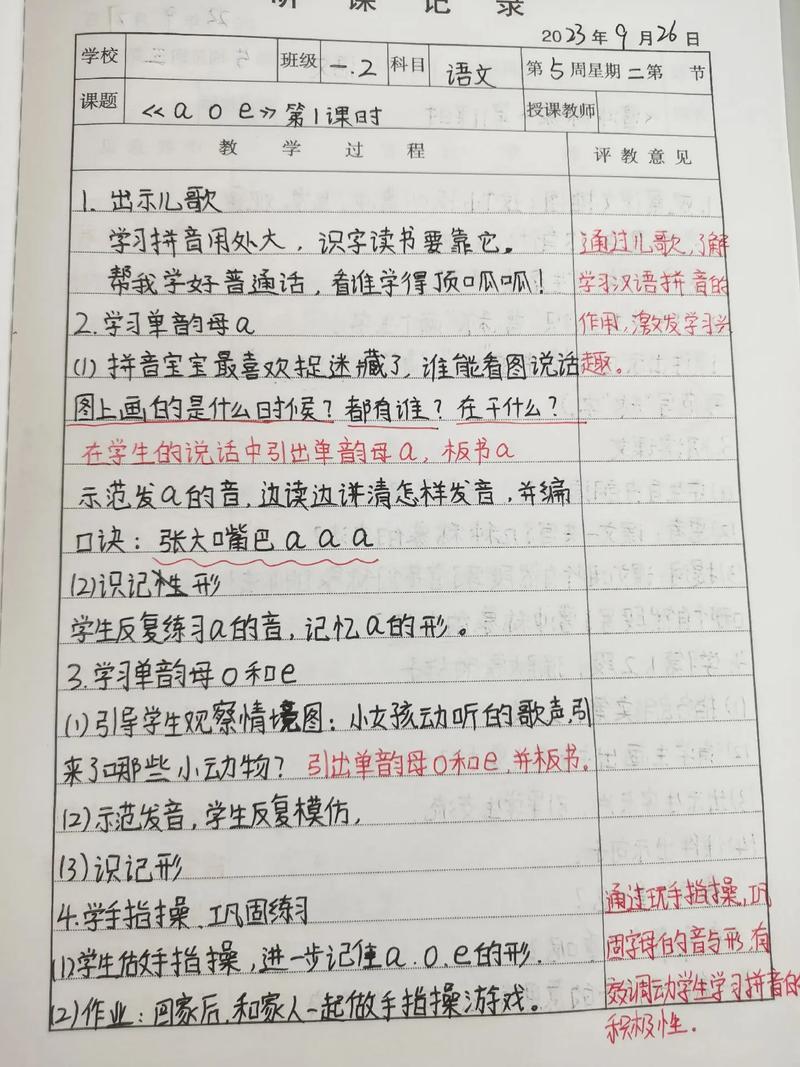 听课记录
2023年9月26日
学校 三 班级 一.2 科目 语文 第5周星期二第 节
课题 《a o e》第1课时 授课教师
教学过程 评教意见
1. 出示儿歌
学习拼音用处大，识字读书要靠它。
帮我学好普通话，看谁学得顶呱呱！
2.学习单韵母a
(1) 拼音宝宝最喜欢捉迷藏了，谁能看图说话
图上画的是什么时候？都有谁？在干什么？
在学生的说话中引出单韵母a，板书a
示范发a的音，边读边讲清怎样发音，并编
口诀：张大嘴巴 a a a
(2)识记 形
学生反复练习a的音，记忆a的形。
3.学习单韵母o和e
(1)引导学生观察情境图：小女孩动听的歌声，引
来了哪些小动物？引出单韵母o和e，并板书。
(2)示范发音，学生反复模仿，
(3)识记形
4.学手指操、巩固练习
(1)学生做手指操，进一步记住a.o.e的形.
(2)作业：回家后，和家人一起做手指操游戏。
通过儿歌，了解
学习汉语拼音的
作用，激发学习兴
趣。
通过玩手指操，巩
固字母的音与形，有
效调动学生学习拼音的
积极性.